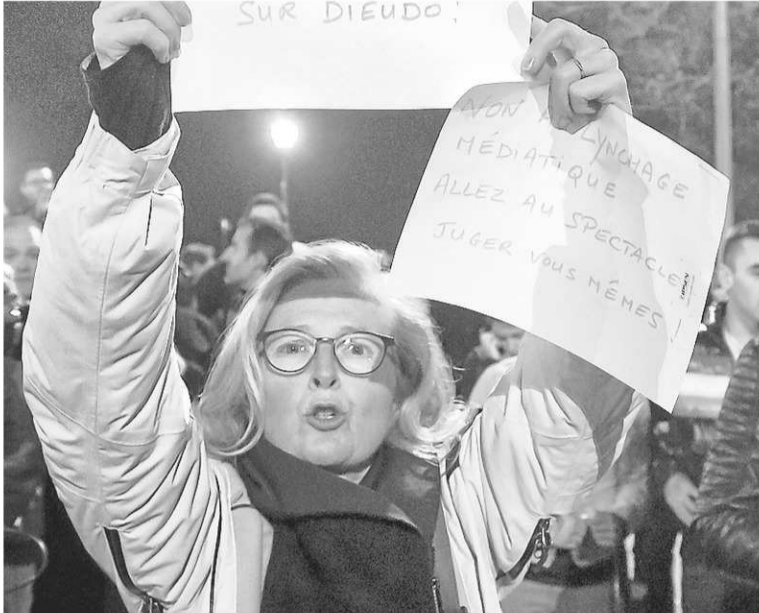 SUR DIEUDO!
NON AU LYNCHAGE
MÉDIATIQUE
ALLEZ AU SPECTACLE
JUGER VOUS MÊMES